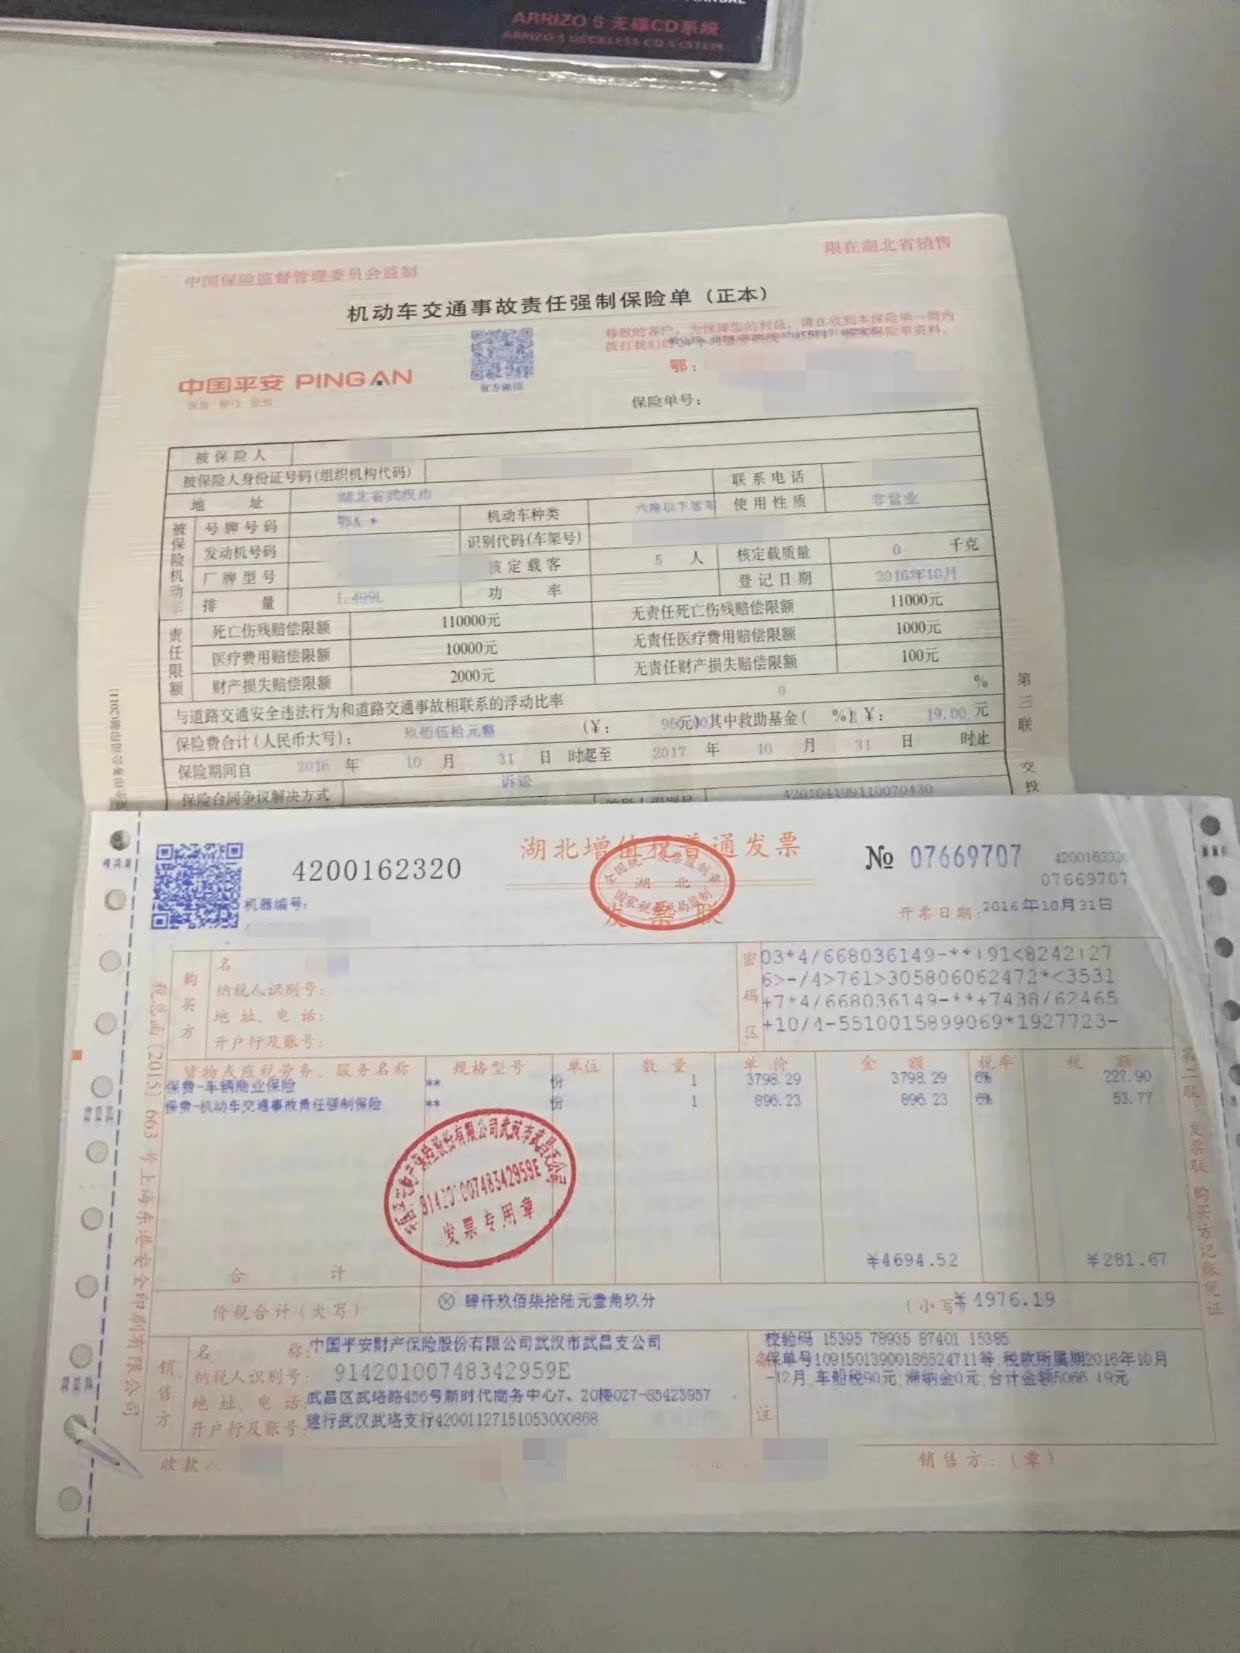 ARRIZO 5 无碟CD系统
ARRIZO 5 DECKLESS CD SYSTEM
中国保险监督管理委员会监制
限在湖北省销售
机动车交通事故责任强制保险单（正本）
尊敬的客户，为保障您的利益，请在收到本保险单一周内
中国平安 PING AN
官方微信
鄂：
保险单号：
被保险人
被保险人身份证号码(组织机构代码)
联系电话
地 址 湖北省武汉市
使用性质 非营业
被保险机动车
号牌号码 鄂A * 机动车种类 六座以下客车
发动机号码 识别代码(车架号)
厂牌型号 核定载客 5 人 核定载质量 0 千克
排 量 1.499L 功 率 登记日期 2016年10月
责任限额
死亡伤残赔偿限额 110000元 无责任死亡伤残赔偿限额 11000元
医疗费用赔偿限额 10000元 无责任医疗费用赔偿限额 1000元
财产损失赔偿限额 2000元 无责任财产损失赔偿限额 100元
与道路交通安全违法行为和道路交通事故相联系的浮动比率 0 %
保险费合计(人民币大写)： 玖佰伍拾元整 (￥： 950.00元)其中救助基金( %)￥： 19.00 元
保险期间自 2016 年 10 月 31 日 时起至 2017 年 10 月 31 日 时止
保险合同争议解决方式 诉讼
420104199110070430
第三联 交投
4200162320
湖北增值税普通发票
发票联
全国统一发票监制章
湖北
国家税务局监制
№ 07669707
4200162320
07669707
机器编号：
开票日期：2016年10月31日
购买方
名
纳税人识别号：
地址、电话：
开户行及账号：
密码区
03*4/668036149-**+91<8242+27
6>-/4>761>305806062472*<3531
+7*4/668036149-**+7438/62465
+10/4-5510015899069*1927723-
货物或应税劳务、服务名称 规格型号 单位 数量 单价 金额 税率 税额
保费-车辆商业保险 ** 份 1 3798.29 3798.29 6% 227.90
保费-机动车交通事故责任强制保险 ** 份 1 896.23 896.23 6% 53.77
91420100748342959E
发票专用章
合 计 ￥4694.52 ￥281.67
价税合计（大写） ⊗ 肆仟玖佰柒拾陆元壹角玖分 （小写）￥4976.19
销售方
名 称：中国平安财产保险股份有限公司武汉市武昌支公司
纳税人识别号：91420100748342959E
地址、电话：武昌区武珞路456号新时代商务中心7、20楼027-85423957
开户行及账号：建行武汉武珞支行42001127151053000868
备注
校验码 15395 78935 87401 15385
保单号10915013900186524711等,税款所属期2016年10月
-12月,车船税90元,滞纳金0元,合计金额5066.19元
收款人
销售方：（章）
税总函〔2015〕663号上海东港安全印刷有限公司
第二联：发票联 购买方记账凭证